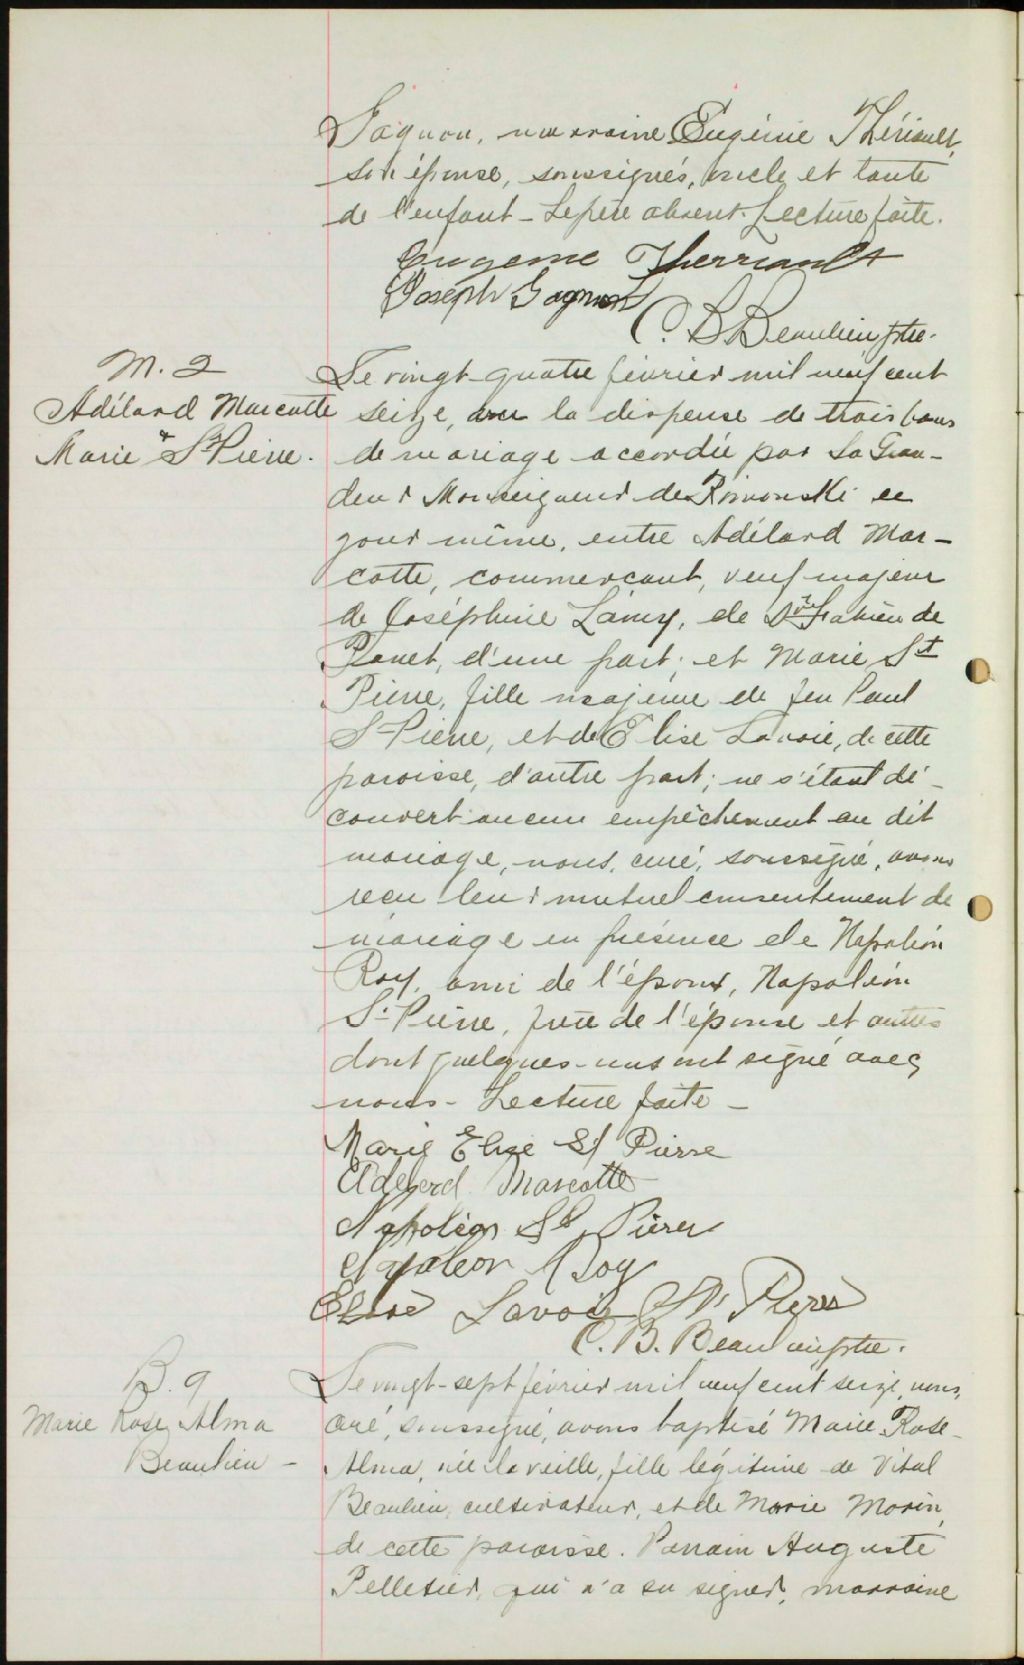 Gagnon, marraine Eugénie Thériault,
son épouse, soussignés, oncle et tante
de l'enfant - Le père absent. Lecture faite.
Eugenie Therriault
Joseph Gagnon
C. B. Beaulieu ptre.
M. 2
Adélard Marcotte
&
Marie St Pierre.
Le vingt-quatre février mil neuf cent
seize, avec la dispense de trois bans
de mariage accordée par Sa Gran-
deur Monseigneur de Rimouski ce
jour même, entre Adélard Mar-
cotte, commercant, veuf majeur
de Joséphine Lamy, de St Fabien de
Panet, d'une part; et Marie St
Pierre, fille majeure de feu Paul
St-Pierre, et de Elise Lavoie, de cette
paroisse, d'autre part; ne s'étant dé-
couvert aucun empêchement au dit
mariage, nous, curé, soussigné, avons
recu leur mutuel consentement de
mariage en présence de Napoléon
Roy, ami de l'époux, Napoléon
St-Pierre, frère de l'épouse et autres
dont quelques-uns ont signé avec
nous - Lecture faite -
Marie Elise St Pierre
Adelard Marcotte
Napoléon St Pierre
Napoleon Roy
Elise Lavoie St Pierre
C. B. Beaulieu ptre.
B. 9
Marie Rose Alma
Beaulieu -
Le vingt-sept février mil neuf cent seize, nous,
curé, soussigné, avons baptisé Marie Rose-
Alma, née la veille, fille légitime de Vital
Beaulieu, cultivateur, et de Marie Morin,
de cette paroisse. Parrain Auguste
Pelletier, qui n'a su signer, marraine